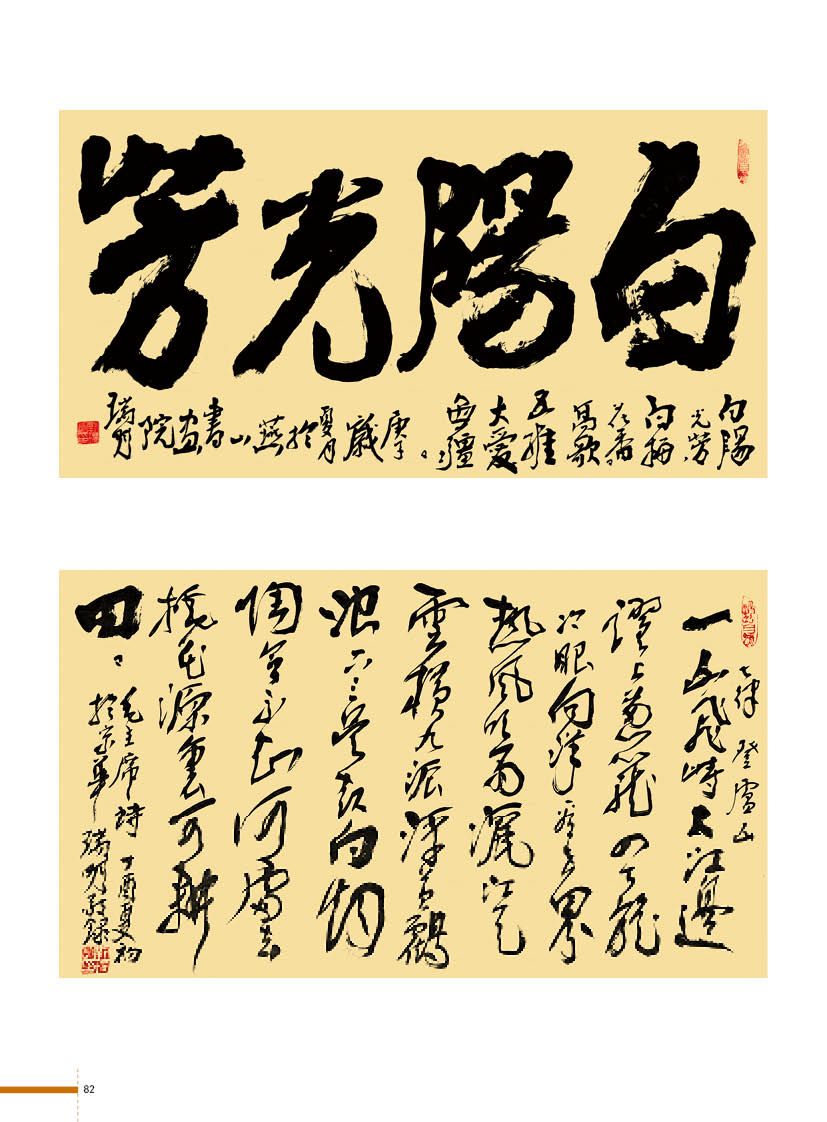 白陽光芳
白陽
光芳
白梅
花香
高歌
五維
大愛
無疆
庚子
歲
夏月
於
燕山
書
畫
院
瑞明
七律 登廬山
一山飛峙大江邊
躍上蔥蘢四百旋
冷眼向洋看世界
熱風吹雨灑江天
雲橫九派浮黃鶴
浪下三吳起白煙
陶令不知何處去
桃花源裏可耕
田
毛主席詩 丁酉夏初
於京華 瑞明敬錄
82